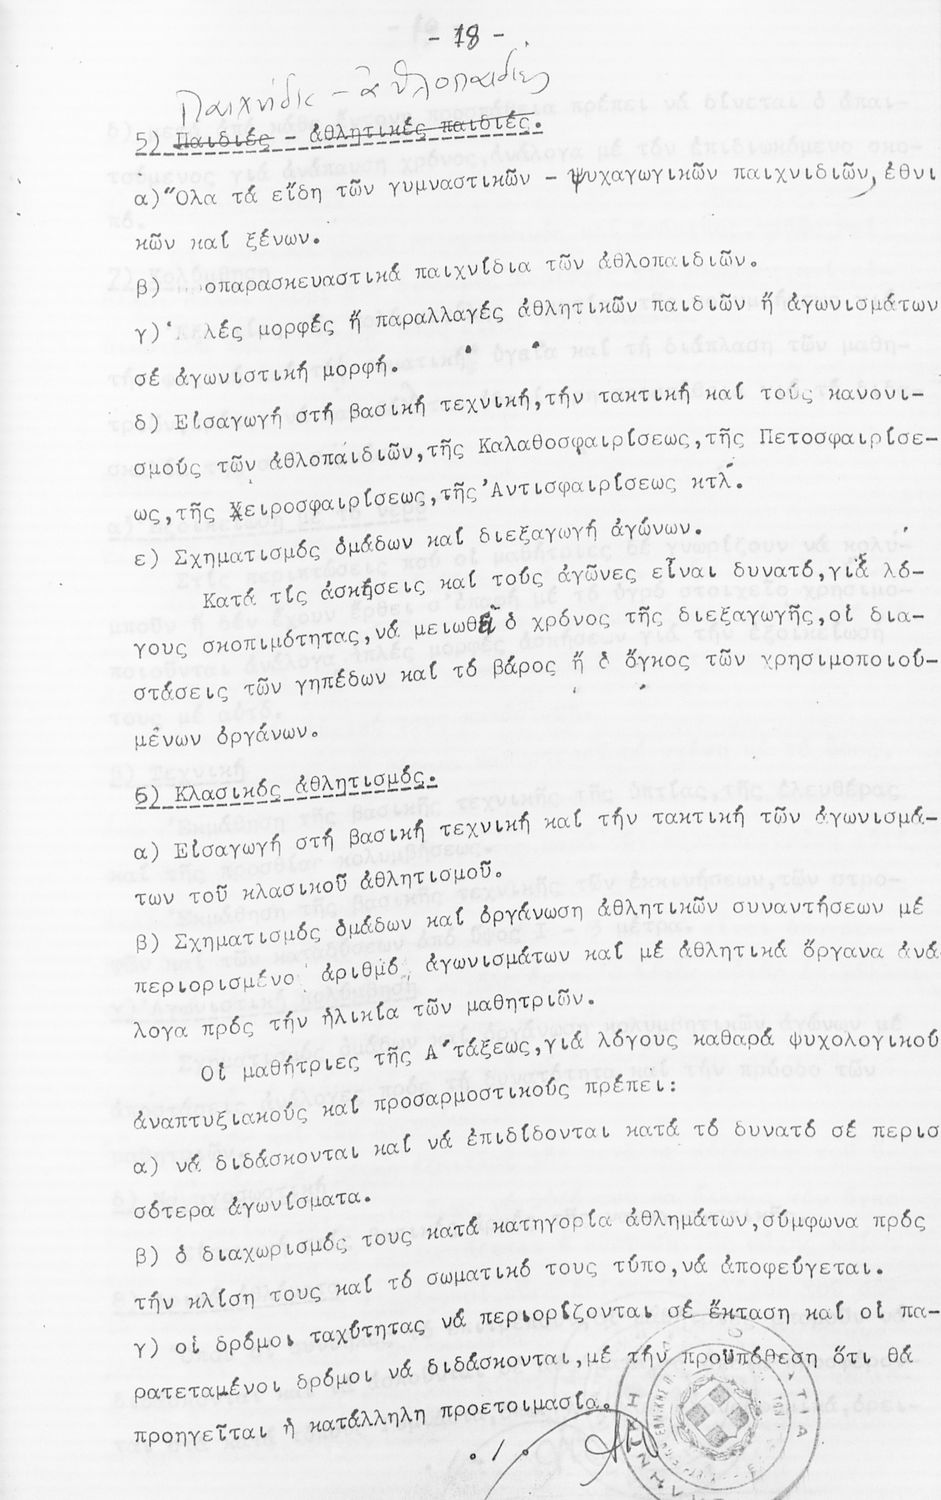 - 18 -
Παιχνίδια - ἀθλοπαιδιές
5) Παιδιές - ἀθλητικές παιδιές.
α) Ὅλα τά εἴδη τῶν γυμναστικῶν - ψυχαγωγικῶν παιχνιδιῶν, ἐθνι
κῶν καί ξένων.
β) οπαρασκευαστικά παιχνίδια τῶν ἀθλοπαιδιῶν.
γ) λές μορφές ἤ παραλλαγές ἀθλητικῶν παιδιῶν ἤ ἀγωνισμάτων
σέ ἀγωνιστική μορφή.
δ) Εἰσαγωγή στή βασική τεχνική, τήν τακτική καί τούς κανονι-
σμούς τῶν ἀθλοπαιδιῶν, τῆς Καλαθοσφαιρίσεως, τῆς Πετοσφαιρίσε-
ως, τῆς Χειροσφαιρίσεως, τῆς Ἀντισφαιρίσεως κτλ.
ε) Σχηματισμός ὁμάδων καί διεξαγωγή ἀγώνων.
Κατά τίς ἀσκήσεις καί τούς ἀγῶνες εἶναι δυνατό, γιά λό-
γους σκοπιμότητας, νά μειωθεῖ ὁ χρόνος τῆς διεξαγωγῆς, οἱ δια-
στάσεις τῶν γηπέδων καί τό βάρος ἤ ὁ ὄγκος τῶν χρησιμοποιού-
μένων ὀργάνων.
6) Κλασικός ἀθλητισμός.
α) Εἰσαγωγή στή βασική τεχνική καί τήν τακτική τῶν ἀγωνισμά-
των τοῦ κλασικοῦ ἀθλητισμοῦ.
β) Σχηματισμός ὁμάδων καί ὀργάνωση ἀθλητικῶν συναντήσεων μέ
περιορισμένο ἀριθμό ἀγωνισμάτων καί μέ ἀθλητικά ὄργανα ἀνά
λογα πρός τήν ἡλικία τῶν μαθητριῶν.
Οἱ μαθήτριες τῆς Α΄ τάξεως, γιά λόγους καθαρά ψυχολογικού
ἀναπτυξιακούς καί προσαρμοστικούς πρέπει:
α) νά διδάσκονται καί νά ἐπιδίδονται κατά τό δυνατό σέ περισ
σότερα ἀγωνίσματα.
β) ὁ διαχωρισμός τους κατά κατηγορία ἀθλημάτων, σύμφωνα πρός
τήν κλίση τους καί τό σωματικό τους τύπο, νά ἀποφεύγεται.
γ) οἱ δρόμοι ταχύτητας νά περιορίζονται σέ ἔκταση καί οἱ πα-
ρατεταμένοι δρόμοι νά διδάσκονται, μέ τήν προϋπόθεση ὅτι θά
προηγεῖται ἡ κατάλληλη προετοιμασία.
. / .